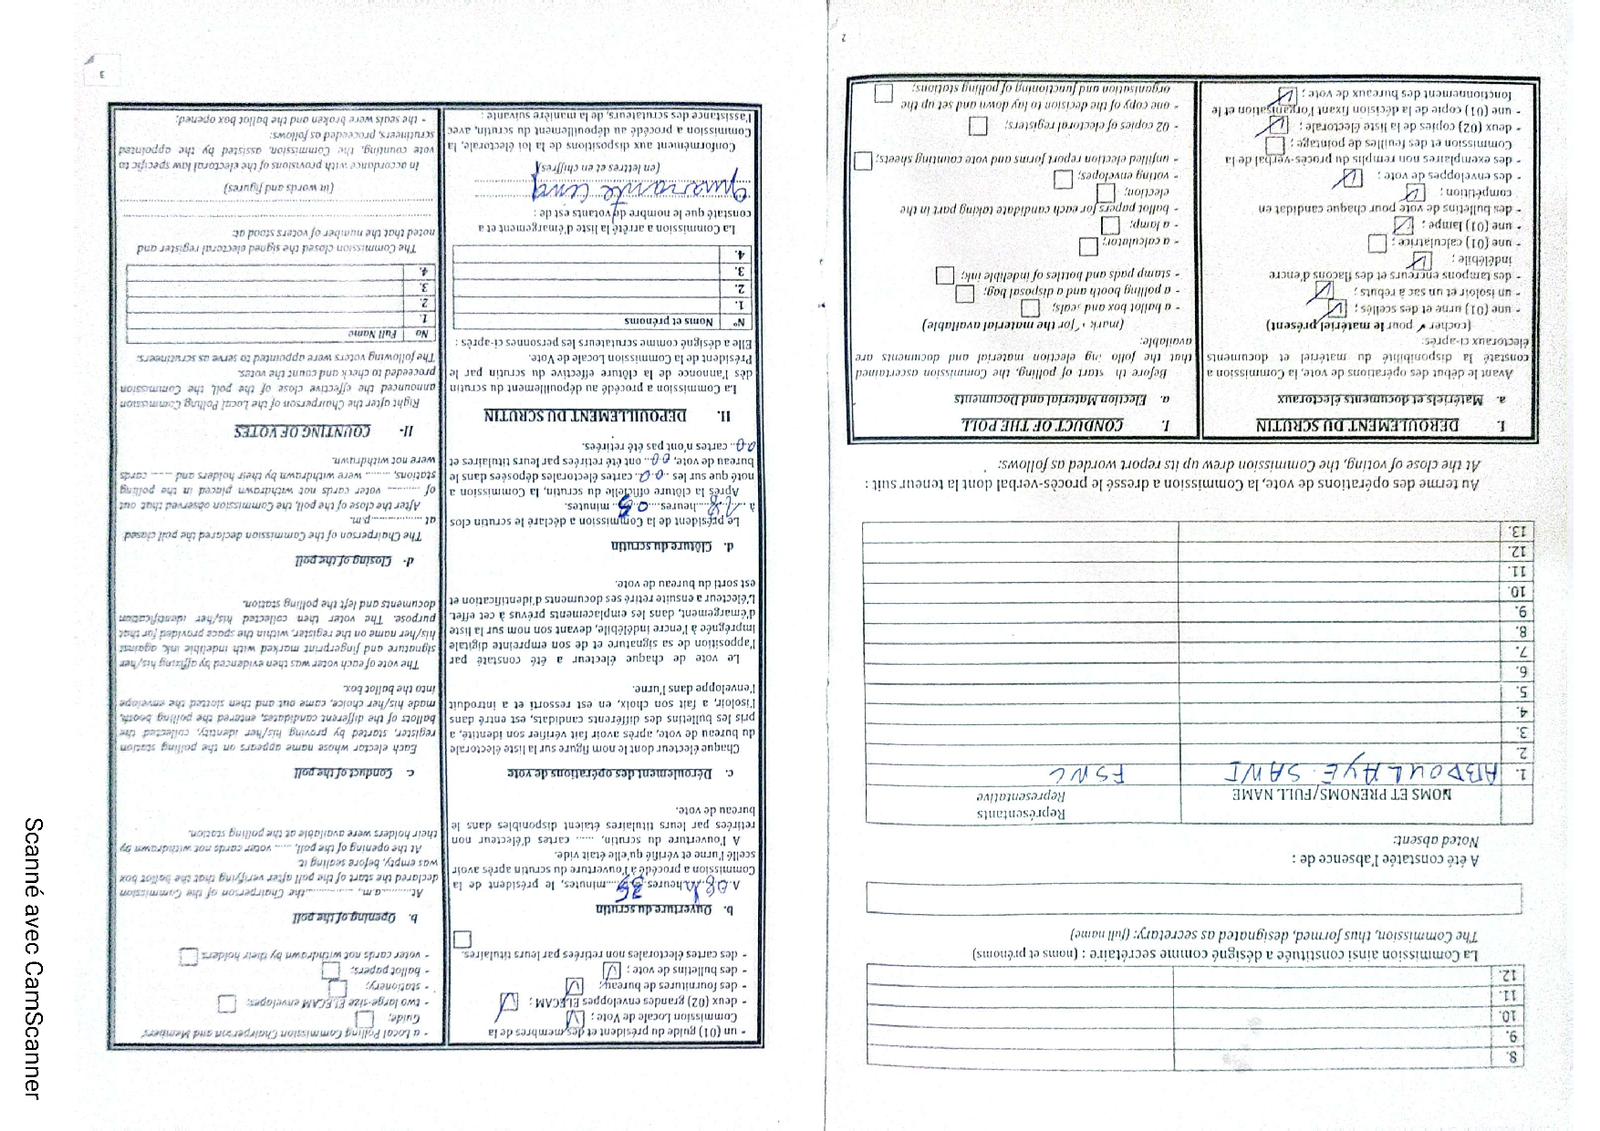 8.
9.
10.
11.
12.
La Commission ainsi constituée a désigné comme secrétaire : (noms et prénoms)
The Commission, thus formed, designated as secretary: (full name)
A été constatée l'absence de :
Noted absent:
NOMS ET PRENOMS/FULL NAME
Représentants
Representative
1. ABDOULAYE SANI FSNC
2.
3.
4.
5.
6.
7.
8.
9.
10.
11.
12.
13.
Au terme des opérations de vote, la Commission a dressé le procès-verbal dont la teneur suit :
At the close of voting, the Commission drew up its report worded as follows:
I. DEROULEMENT DU SCRUTIN
a. Matériels et documents électoraux
Avant le début des opérations de vote, la Commission a
constaté la disponibilité du matériel et documents
électoraux ci-après:
(cocher ✓ pour le matériel présent)
- une (01) urne et des scellés ;
- un isoloir et un sac à rebuts ;
- des tampons encreurs et des flacons d'encre
indélébile ;
- une (01) calculatrice ;
- une (01) lampe ;
- des bulletins de vote pour chaque candidat en
compétition ;
- des enveloppes de vote ;
- des exemplaires non remplis du procès-verbal de la
Commission et des feuilles de pointage ;
- deux (02) copies de la liste électorale ;
- une (01) copie de la décision fixant l'organisation et le
fonctionnement des bureaux de vote ;
I. CONDUCT OF THE POLL
a. Election Material and Documents
Before th start of polling, the Commission ascertained
that the follo ing election material and documents are
available:
(mark ✓ for the material available)
- a ballot box and seals;
- a polling booth and a disposal bag;
- stamp pads and bottles of indelible ink;
- a calculator;
- a lamp;
- ballot papers for each candidate taking part in the
election;
- voting envelopes;
- unfilled election report forms and vote counting sheets;
- 02 copies of electoral registers;
- one copy of the decision to lay down and set up the
organisation and functioning of polling stations;
2
- un (01) guide du président et des membres de la
Commission Locale de Vote ;
- deux (02) grandes enveloppes ELECAM ;
- des fournitures de bureau;
- des bulletins de vote ;
- des cartes électorales non retirées par leurs titulaires.
b. Ouverture du scrutin
A 08h heures 35 minutes, le président de la
Commission a procédé à l'ouverture du scrutin après avoir
scellé l'urne et vérifié qu'elle était vide.
A l'ouverture du scrutin, ...... cartes d'électeur non
retirées par leurs titulaires étaient disponibles dans le
bureau de vote.
c. Déroulement des opérations de vote
Chaque électeur dont le nom figure sur la liste électorale
du bureau de vote, après avoir fait vérifier son identité, a
pris les bulletins des différents candidats, est entré dans
l'isoloir, a fait son choix, en est ressorti et a introduit
l'enveloppe dans l'urne.
Le vote de chaque électeur a été constaté par
l'apposition de sa signature et de son empreinte digitale
imprégnée à l'encre indélébile, devant son nom sur la liste
d'émargement, dans les emplacements prévus à cet effet.
L'électeur a ensuite retiré ses documents d'identification et
est sorti du bureau de vote.
d. Clôture du scrutin
Le président de la Commission a déclaré le scrutin clos
à 18 heures 05 minutes.
Après la clôture officielle du scrutin, la Commission a
noté que sur les 00 cartes électorales déposées dans le
bureau de vote, 00 ont été retirées par leurs titulaires et
00 cartes n'ont pas été retirées.
II. DEPOUILLEMENT DU SCRUTIN
La Commission a procédé au dépouillement du scrutin
dès l'annonce de la clôture effective du scrutin par le
Président de la Commission Locale de Vote.
Elle a désigné comme scrutateurs les personnes ci-après :
N° Noms et prénoms
1.
2.
3.
4.
La Commission a arrêté la liste d'émargement et a
constaté que le nombre de votants est de :
quarante cinq
(en lettres et en chiffres)
Conformément aux dispositions de la loi électorale, la
Commission a procédé au dépouillement du scrutin, avec
l'assistance des scrutateurs, de la manière suivante :
- a Local Polling Commission Chairperson and Members'
Guide;
- two large-size ELECAM envelopes;
- stationery;
- ballot papers;
- voter cards not withdrawn by their holders
b. Opening of the poll
At..........a.m., ..............the Chairperson of the Commission
declared the start of the poll after verifying that the ballot box
was empty, before sealing it.
At the opening of the poll, ...... voter cards not withdrawn by
their holders were available at the polling station.
c. Conduct of the poll
Each elector whose name appears on the polling station
register, started by proving his/her identity, collected the
ballots of the different candidates, entered the polling booth,
made his/her choice, came out and then slotted the envelope
into the ballot box.
The vote of each voter was then evidenced by affixing his/her
signature and fingerprint marked with indelible ink, against
his/her name on the register, within the space provided for that
purpose. The voter then collected his/her identification
documents and left the polling station.
d- Closing of the poll
The Chairperson of the Commission declared the poll closed
at ..................p.m.
After the close of the poll, the Commission observed that out
of ......... voter cards not withdrawn placed in the polling
stations, ........ were withdrawn by their holders and ....... cards
were not withdrawn.
II- COUNTING OF VOTES
Right after the Chairperson of the Local Polling Commission
announced the effective close of the poll, the Commission
proceeded to check and count the votes.
The following voters were appointed to serve as scrutineers:
No Full Name
1.
2.
3.
4.
The Commission closed the signed electoral register and
noted that the number of voters stood at:
(in words and figures)
In accordance with provisions of the electoral law specific to
vote counting, the Commission, assisted by the appointed
scrutineers, proceeded as follows:
- the seals were broken and the ballot box opened;
3
Scanné avec CamScanner